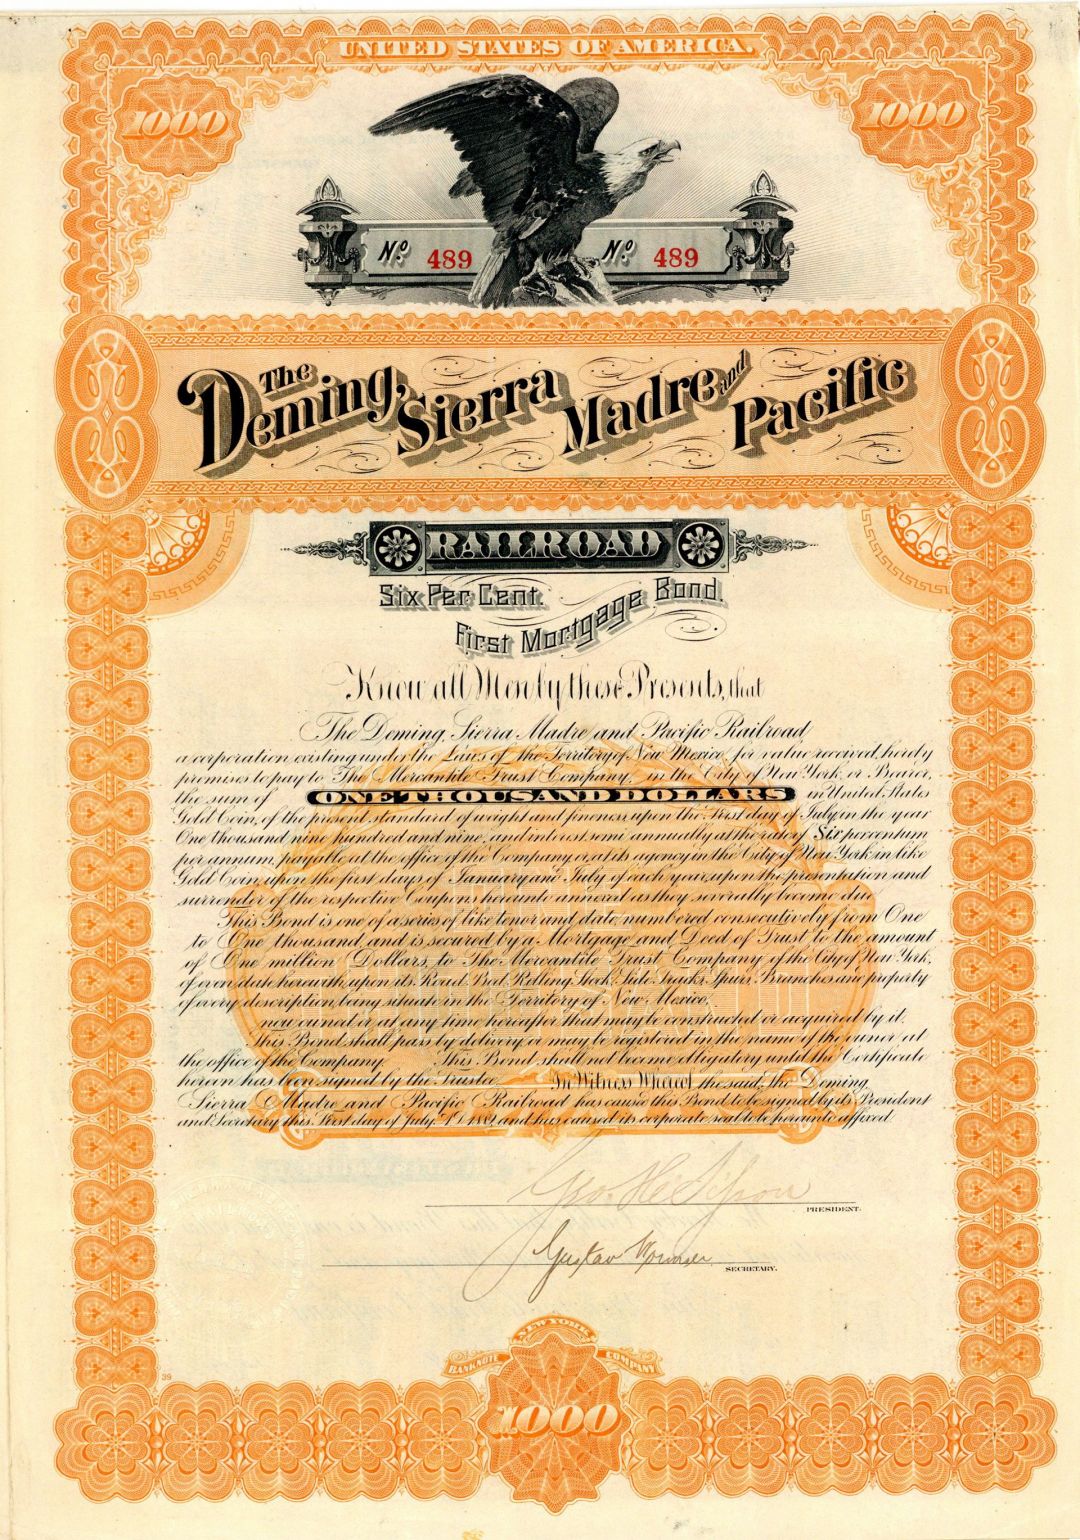 UNITED STATES OF AMERICA.
1000 1000
No. 489 No. 489
The Deming, Sierra Madre and Pacific
RAILROAD
Six Per Cent. Bond.
First Mortgage
Know all Men by these Presents, that
The Deming, Sierra Madre and Pacific Railroad,
a corporation existing under the Laws of the Territory of New Mexico, for value received, hereby
promises to pay to The Mercantile Trust Company, in the City of New York, or Bearer,
the sum of ONE THOUSAND DOLLARS in United States
Gold Coin, of the present standard of weight and fineness upon the First day of July, in the year
One thousand nine hundred and nine, and interest semi annually at the rate of Six per centum
per annum, payable at the office of the Company or, at its agency in the City of New York in like
Gold Coin, upon the first days of January and July of each year, upon the presentation and
surrender of the respective Coupons hereunto annexed as they severally become due.
This Bond is one of a series of like tenor and date numbered consecutively from One
to One thousand and is secured by a Mortgage and Deed of Trust to the amount
of One million Dollars, to The Mercantile Trust Company of the City of New York,
of even date herewith upon its Road Bed, Rolling Stock, Side Tracks, Spurs, Branches and property
of every description, being situate in the Territory of New Mexico,
now owned or at any time hereafter that may be constructed or acquired by it.
This Bond shall pass by delivery or may be registered in the name of the owner at
the office of the Company This Bond shall not become obligatory until the Certificate
hereon has been signed by the Trustee In Witness Whereof the said, The Deming,
Sierra Madre and Pacific Railroad has caused this Bond to be signed by its President
and Secretary this First day of July, A.D. and has caused its corporate seal to be hereunto affixed.
Geo. H.
PRESIDENT.
Gustav
SECRETARY.
NEW YORK
BANK NOTE COMPANY
39
1000